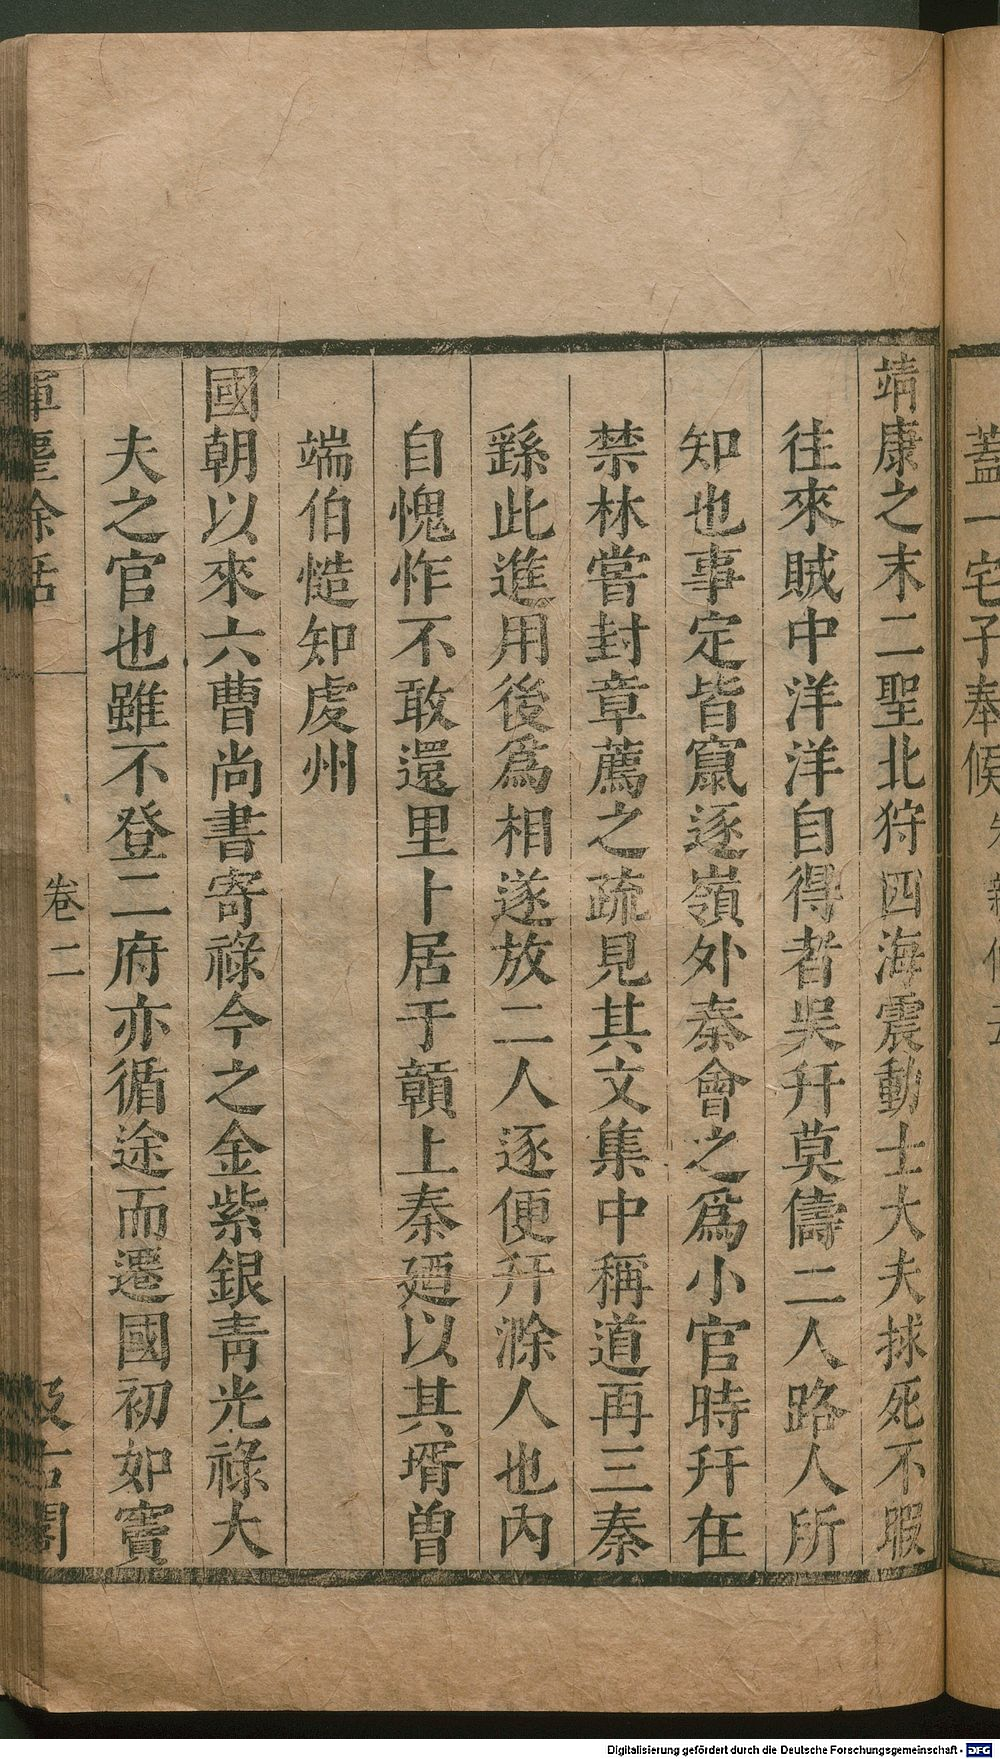 蓋一宅子奉候
靖康之末二聖北狩四海震動士大夫捄死不暇
往來賊中洋洋自得者吳幵莫儔二人路人所
知也事定皆竄逐嶺外秦會之爲小官時幵在
禁林嘗封章薦之疏見其文集中稱道再三秦
繇此進用後爲相遂放二人逐便幵滁人也內
自愧怍不敢還里卜居于贑上秦廼以其壻曾
端伯慥知虔州
國朝以來六曹尚書寄祿今之金紫銀青光祿大
夫之官也雖不登二府亦循途而遷國初如竇
揮麈餘話 卷二 汲古閣
Digitalisierung gefördert durch die Deutsche Forschungsgemeinschaft - DFG